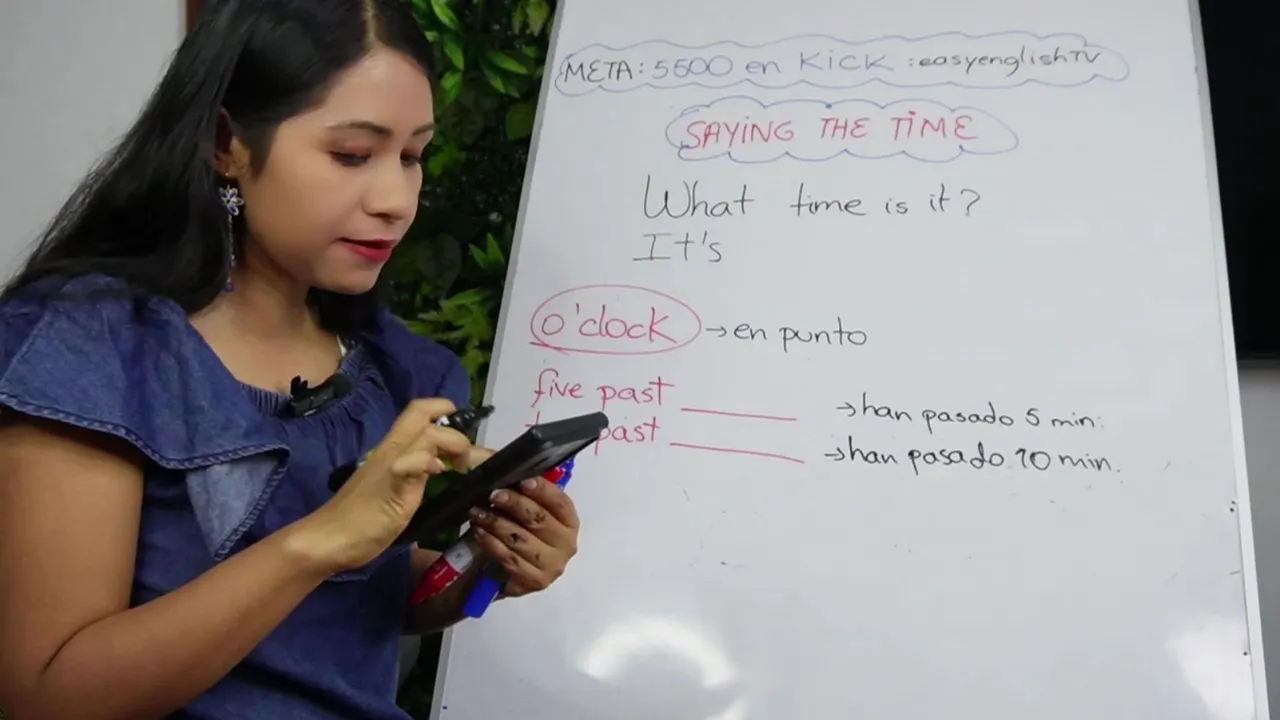 META: 5500 en Kick : easyenglishTV
SAYING THE TIME
What time is it?
It's
o'clock → en punto
five past ________ → han pasado 5 min.
past ________ → han pasado 10 min.